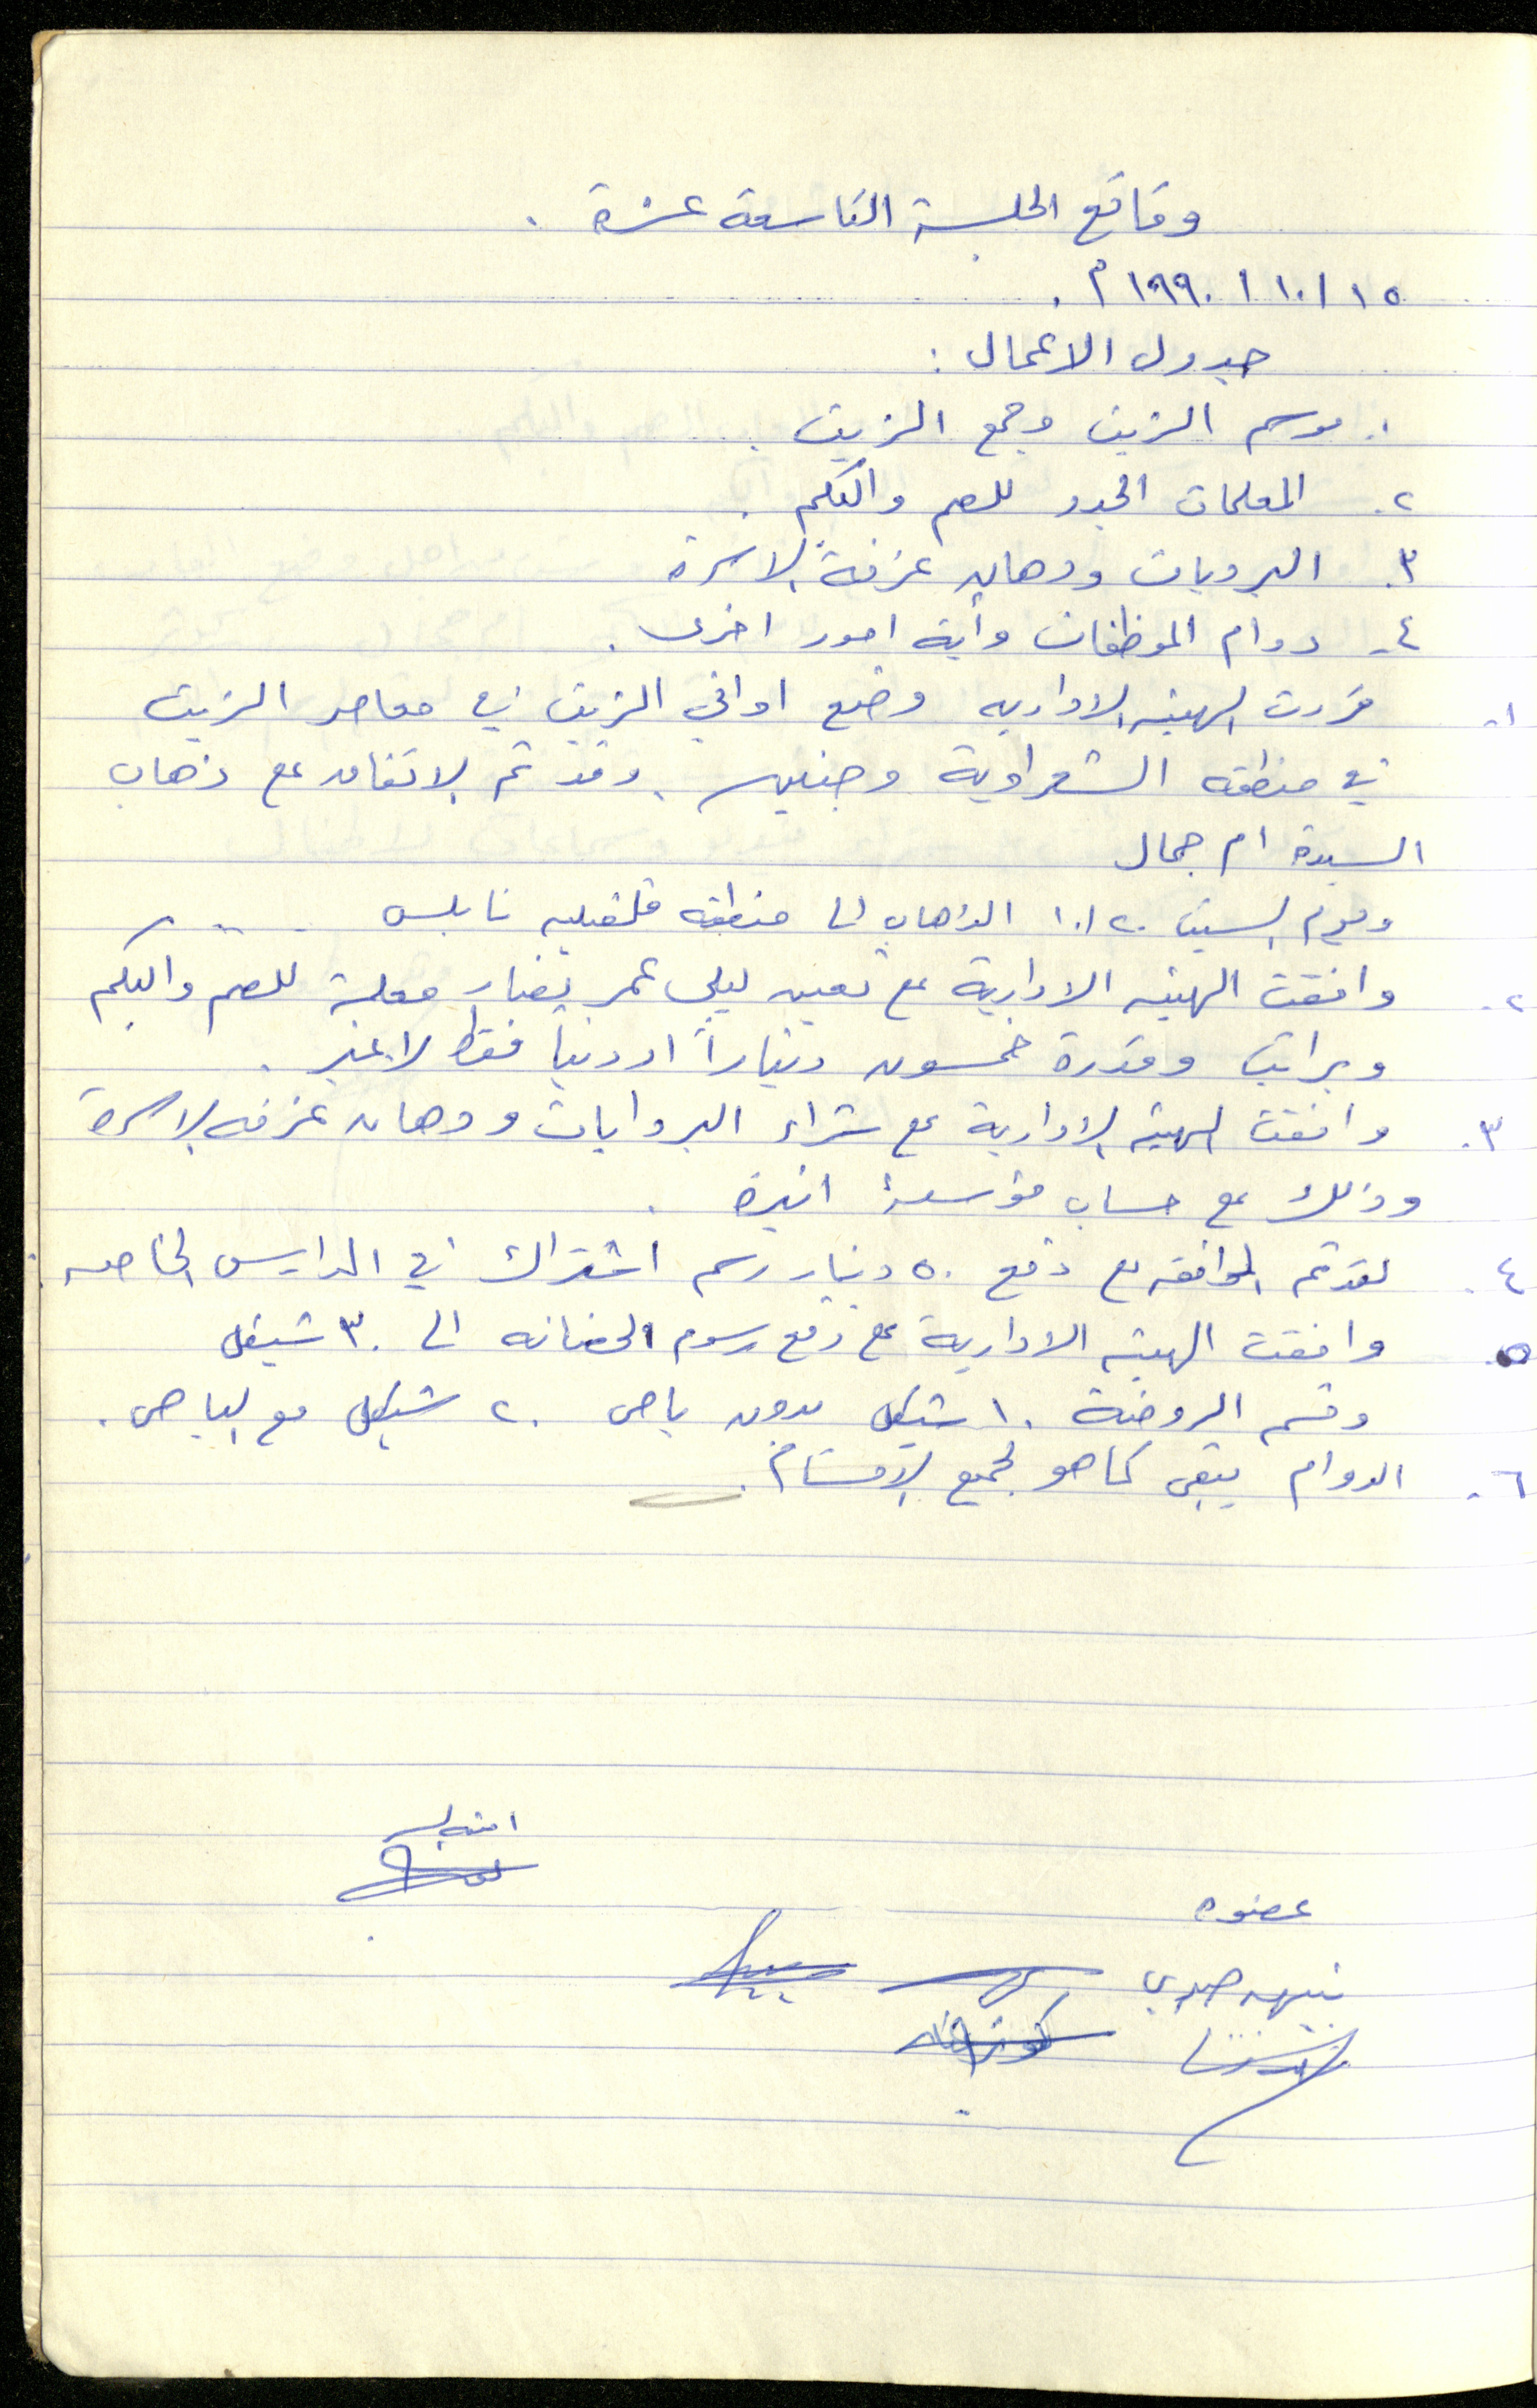 وقائع الجلسة التاسعة عشرة .
١٥ / ١٠ / ١٩٩٠ م .
جدول الاعمال :
١. موسم الزيت وجمع الزيت .
٢. المعلمات الجدد للصم والبكم .
٣. البرديات ودهان غرفة الاسرة
٤. دوام الموظفات وأية امور اخرى .
١. قررت الهيئه الاداريه وضع اواني الزيت في معاصر الزيت
في منطقه الشعراوية وجنين وقد تم الاتفاق مع ذهاب
السيدة ام جمال
ويوم السبت ٢٠/١٠ الذهاب الى منطقه قلقيليه نابلس
٢. وافقت الهيئه الادارية على تعيين ليلى عمر نصار معلمة للصم والبكم
وبراتب وقدرة خمسون ديناراً اردنيا فقط لا غير .
٣. وافقت الهيئه الادارية على شراء البروايات ودهان غرفه الاسرة
وذلك على حساب مؤسسة انيرة .
٤. لقد تم الموافقه على دفع ٥٠ دينار رسم اشتراك في المدارس الخاصه .
٥. وافقت الهيئه الادارية على رفع رسوم الحضانه الى ٣٠ شيقل
وقسم الروضة ١٠ شيكل بدون باص ٢٠ شيكل مع الباص .
٦. الدوام يبقى كما هو لجميع الاقسام .
عضوه
نبيهه صبري